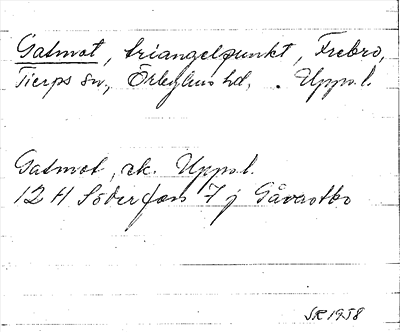 Gatmot, triangelpunkt, Frebro,
Tierps sn, Örbyhus hd, . Upps. l.
Gatmot, ek. Upps. l.
12 H Söderfors 7 j Gåvastbo
SR 1958